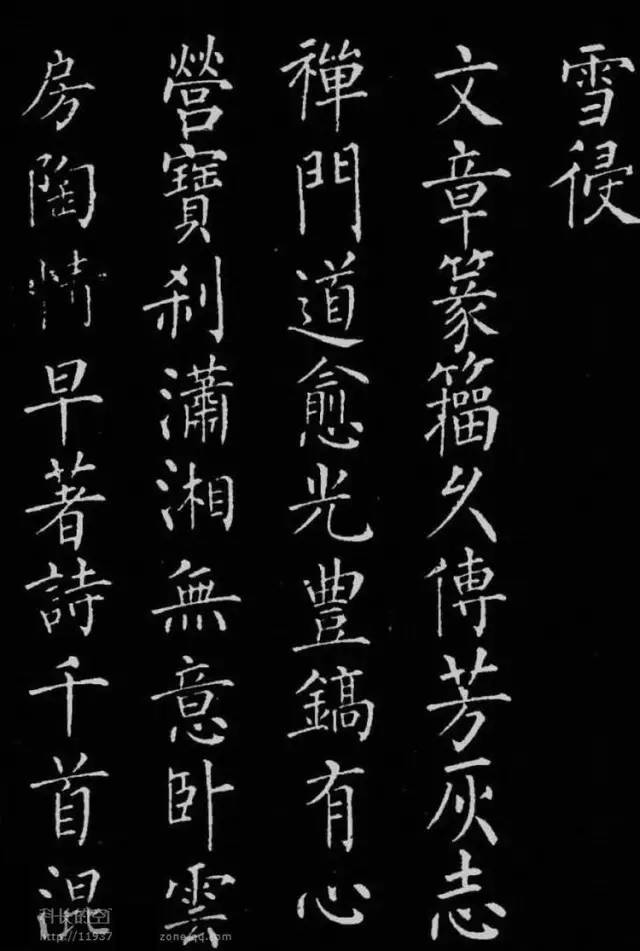 雪侵
文章篆籀久傳芳灰志
禪門道愈光豊鎬有心
營寶刹瀟湘無意卧雲
房陶情早著詩千首混
科长的空
http://11937 zone.qq.com